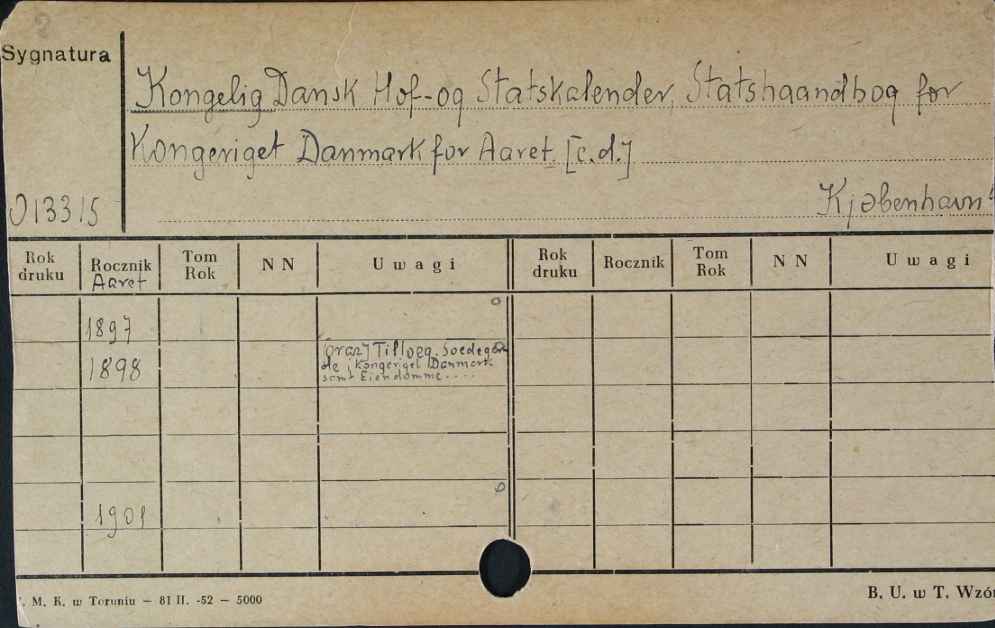 Sygnatura
Kongelig Dansk Hof-og Statskalender, Statshaandbog for
Kongeriget Danmark for Aaret. [c.d.]
013315
Kjøbenhavn
Rok druku Rocznik Tom Rok N N Uwagi Rok druku Rocznik Tom Rok N N Uwagi
Aaret
1897
1898
[oraz] Tillæg
de i Kongeriget Danmark
samt Eiendomme....
1901
. M. K. w Toruniu — 81 II. -52 — 5000
B. U. w T. Wzór